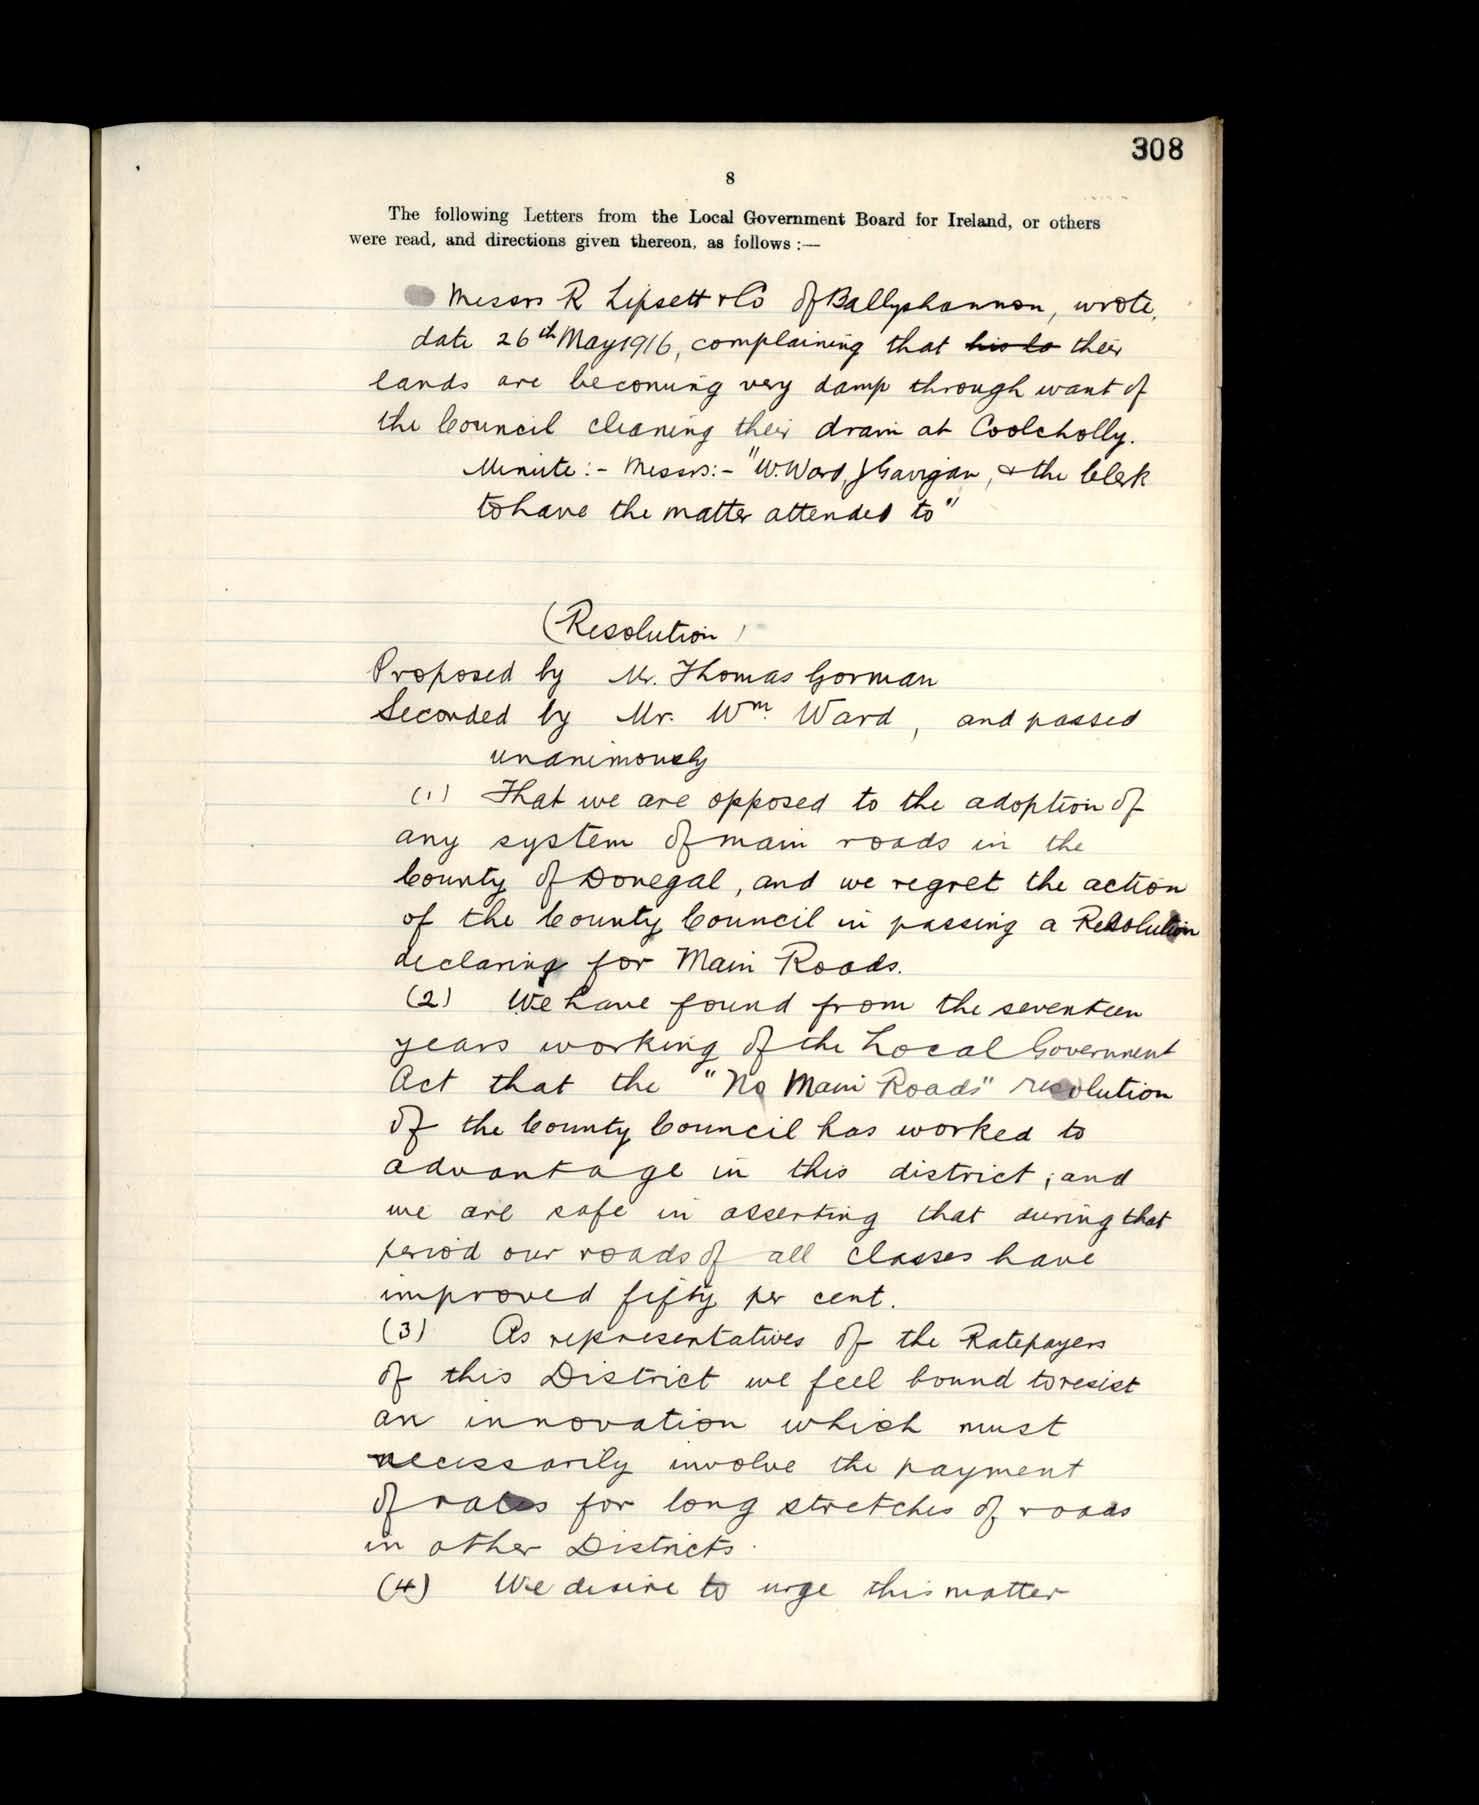 308
8
The following Letters from the Local Government Board for Ireland, or others
were read, and directions given thereon, as follows :—
Messrs R Lipsett & Co of Ballyshannon, wrote,
date 26th May 1916, complaining that his la their
lands are becoming very damp through want of
the Council cleaning their drain at Coolcholly.
Minute :- Messrs :- "W. Ward, J Gavigan, & the Clerk
to have the matter attended to"
(Resolution)
Proposed by Mr. Thomas Gorman
Seconded by Mr. Wm. Ward, and passed
unanimously
(1) That we are opposed to the adoption of
any system of main roads in the
County of Donegal, and we regret the action
of the County Council in passing a Resolution
declaring for Main Roads.
(2) We have found from the seventeen
years working of the Local Government
Act that the "No Main Roads" resolution
of the County Council has worked to
advantage in this district; and
we are safe in asserting that during that
period our roads of all classes have
improved fifty per cent.
(3) As representatives of the Ratepayers
of this District we feel bound to resist
an innovation which must
necessarily involve the payment
of rates for long stretches of roads
in other Districts.
(4) We desire to urge this matter